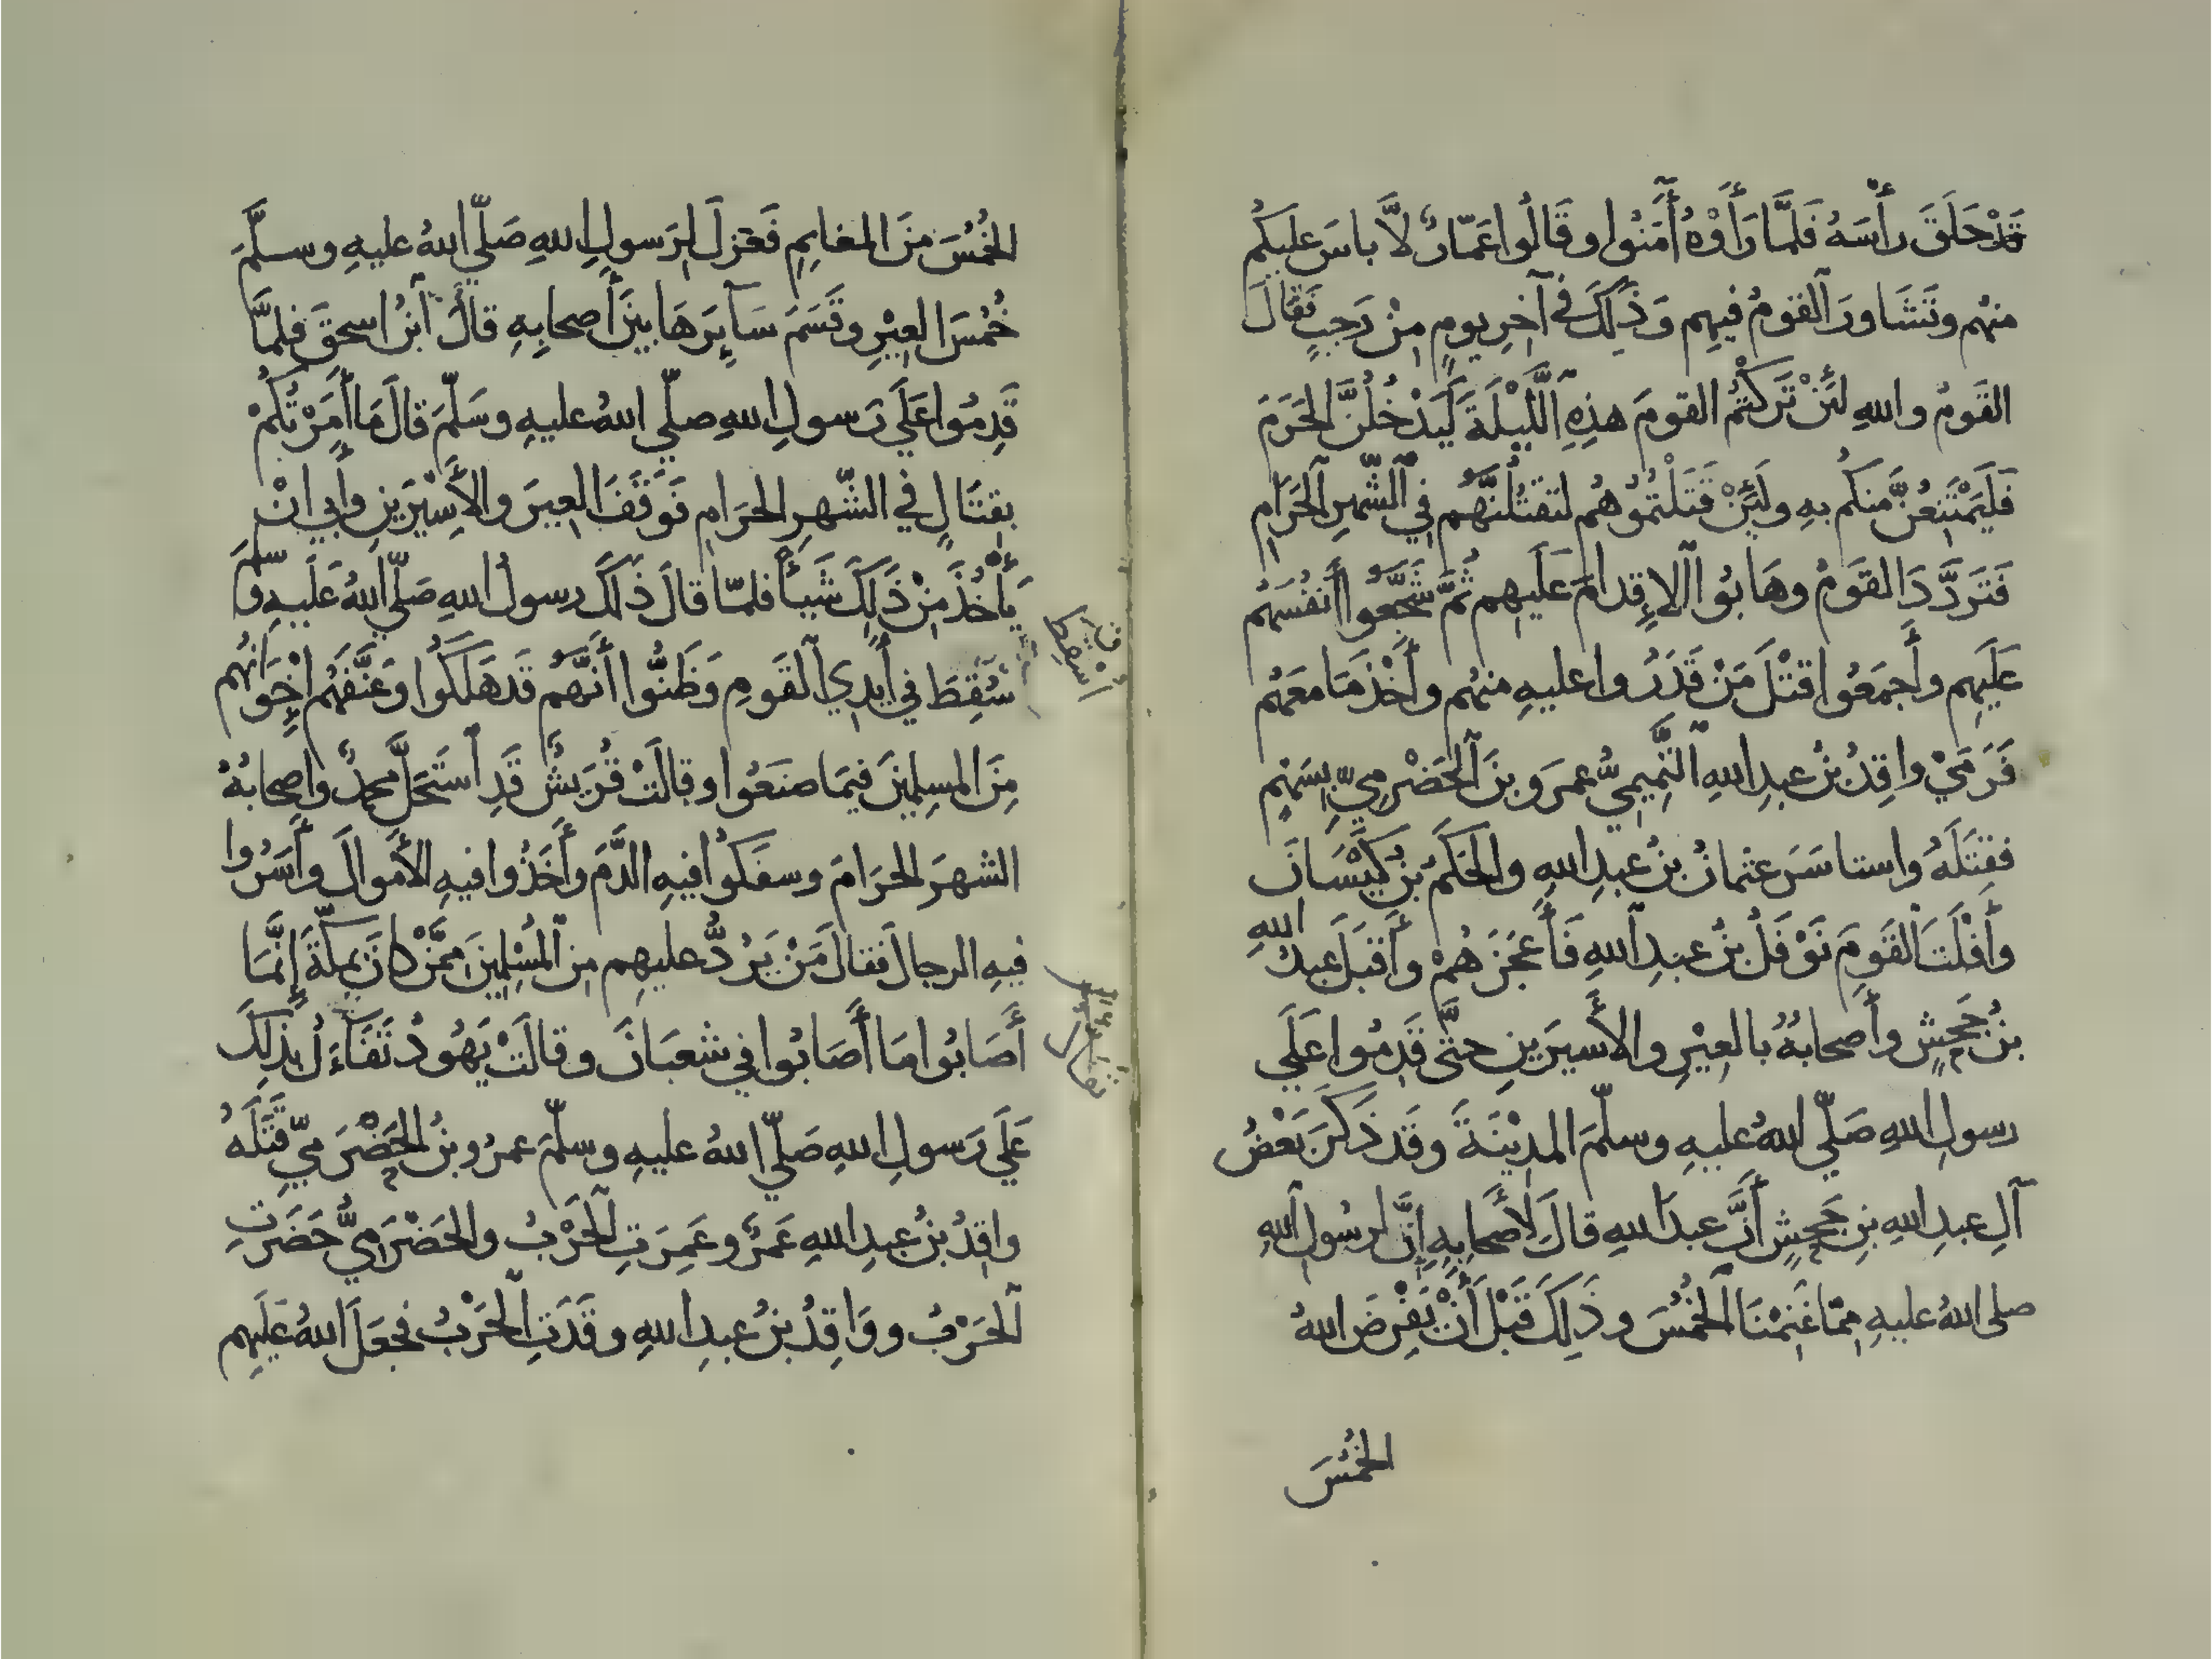 قَدْ حَلَقَ رَأْسَهُ فَلَمَّا رَأَوْهُ أَمَنُوا وقَالُوا عَمّارٌ لَّا باسَ عليكُم
منهُم وتَشَاورَ القومُ فيهِم وَذٰلِكَ في آخِرِ يومٍ مِنْ رَجبٍ فَقالَ
القَومُ واللهِ لئِنْ تَرَكْتُمُ القومَ هذِهِ اللَّيْلَةَ لَيَدْخُلُنَّ الحَرَمَ
فَلَيَمْتَنِعُنَّ مِنكُم بهِ ولَئِنْ قَتَلْتُمُوهُم لتقتُلُنَّهُم في الشّهرِ الحَرَامِ
فَتَردَّدَ القَومُ وهَابُوا الإِقدامَ عَلَيهِم ثُمَّ شَجَّعُوا أَنفُسَهُم
عَلَيهِم وأَجمَعُوا قتْلَ مَنْ قَدَرُوا عليهِ منهُم وأَخْذَ مَا معَهُم
فَرَمَيْ واقِدُ بنُ عبدِ اللهِ التَّمِيمِيُّ عمرَو بنَ الحَضْرمِيِّ بِسَهْمٍ
فقتَلَهُ واستاسَرَ عثمانُ بنُ عبدِ اللهِ والحَكَمُ بنُ كَيْسَانَ
وأَفْلَتَ القَومَ نَوْفَلُ بنُ عبدِ اللهِ فَأَعْجَزَهُمْ وأَقبَلَ عبدُ اللهِ
بنُ جَحشٍ وأَصحابُهُ بالعِيْرِ والأَسيَرينِ حتَّى قَدِمُوا عَلَي
رسولِ اللهِ صَلّي اللهُ عليهِ وسلّمَ المدِيْنَةَ وقَد ذَكَرَ بَعْضُ
آلِ عبدِ اللهِ بنِ جَحشٍ أَنَّ عبدَ اللهِ قالَ لأَصحابِهِ إِنَّ لرسُولِ اللهِ
صلى اللهُ عليهِ مِمّا غَنِمْنَا الخُمُسَ وذَلِكَ قَبْلَ أَنْ يَفْرِضَ اللهُ
الخُمُسَ
الخُمُسَ مِنَ المغانِمِ فَعَزلَ لِرَسولِ اللهِ صَلّي اللهُ عليهِ وسلَّمَ
خُمُسَ العِيْرِ وقَسَمَ سَآئِرَهَا بينَ أَصحابِهِ قالَ ابنُ اسحقَ فلمَّا
قَدِمُوا عَلَي رَسولِ اللهِ صلّي اللهُ عليهِ وسَلّمَ قالَ مَا أَمَرْتُكُمْ
بقِتَالٍ في الشّهرِ الحَرَامِ فَوَقَفَ العيرَ والأَسِيْرَينِ وأَبي انْ
يَأْخُذَ مِنْ ذَلِكَ شَيأً فلمّا قالَ ذٰلكَ رسولُ اللهِ صَلّي اللهُ عَلَيهِ وسلّمَ
سُقِطَ في أَيدِي القَومِ وَظَنُّوا أَنَّهُم قَد هَلَكُوا وعَنَّفَهُم إِخْوَانُهُم
مِنَ المسلِمِينَ فيمَا صنَعُوا وقالَتْ قُرَيشٌ قَدِ استَحَلَّ محمدٌ وأصحابُهُ
الشهرَ الحَرَامَ وسفَكُوا فيهِ الدَّمَ وأَخَذُوا فيهِ الأَموالَ وأَسَرُوا
فيهِ الرجالَ فقالَ مَنْ يَرُدُّ عليهِم مِنَ المُسْلِمِينَ مِمَّنْ كانَ بمكّةَ إِنَّمَا
أَصَابُوا مَا أَصَابُوا في شعبَانَ وقالَتْ يَهُودُ تَفَاءَلُ بذلِكَ
عَلَي رَسولِ اللهِ صَلّي اللهُ عليهِ وسلّمَ عمرُو بنُ الحَضْرَميِّ قَتَلَهُ
واقِدُ بنُ عبدِ اللهِ عَمرٌو عَمِرَتِ الحَرْبُ والحَضْرَمِيُّ حَضَرَتِ
الحَرْبُ ووَاقِدُ بنُ عبدِ اللهِ وقَدَتِ الحَرْبُ فجعَلَ اللهُ عَلَيهِم